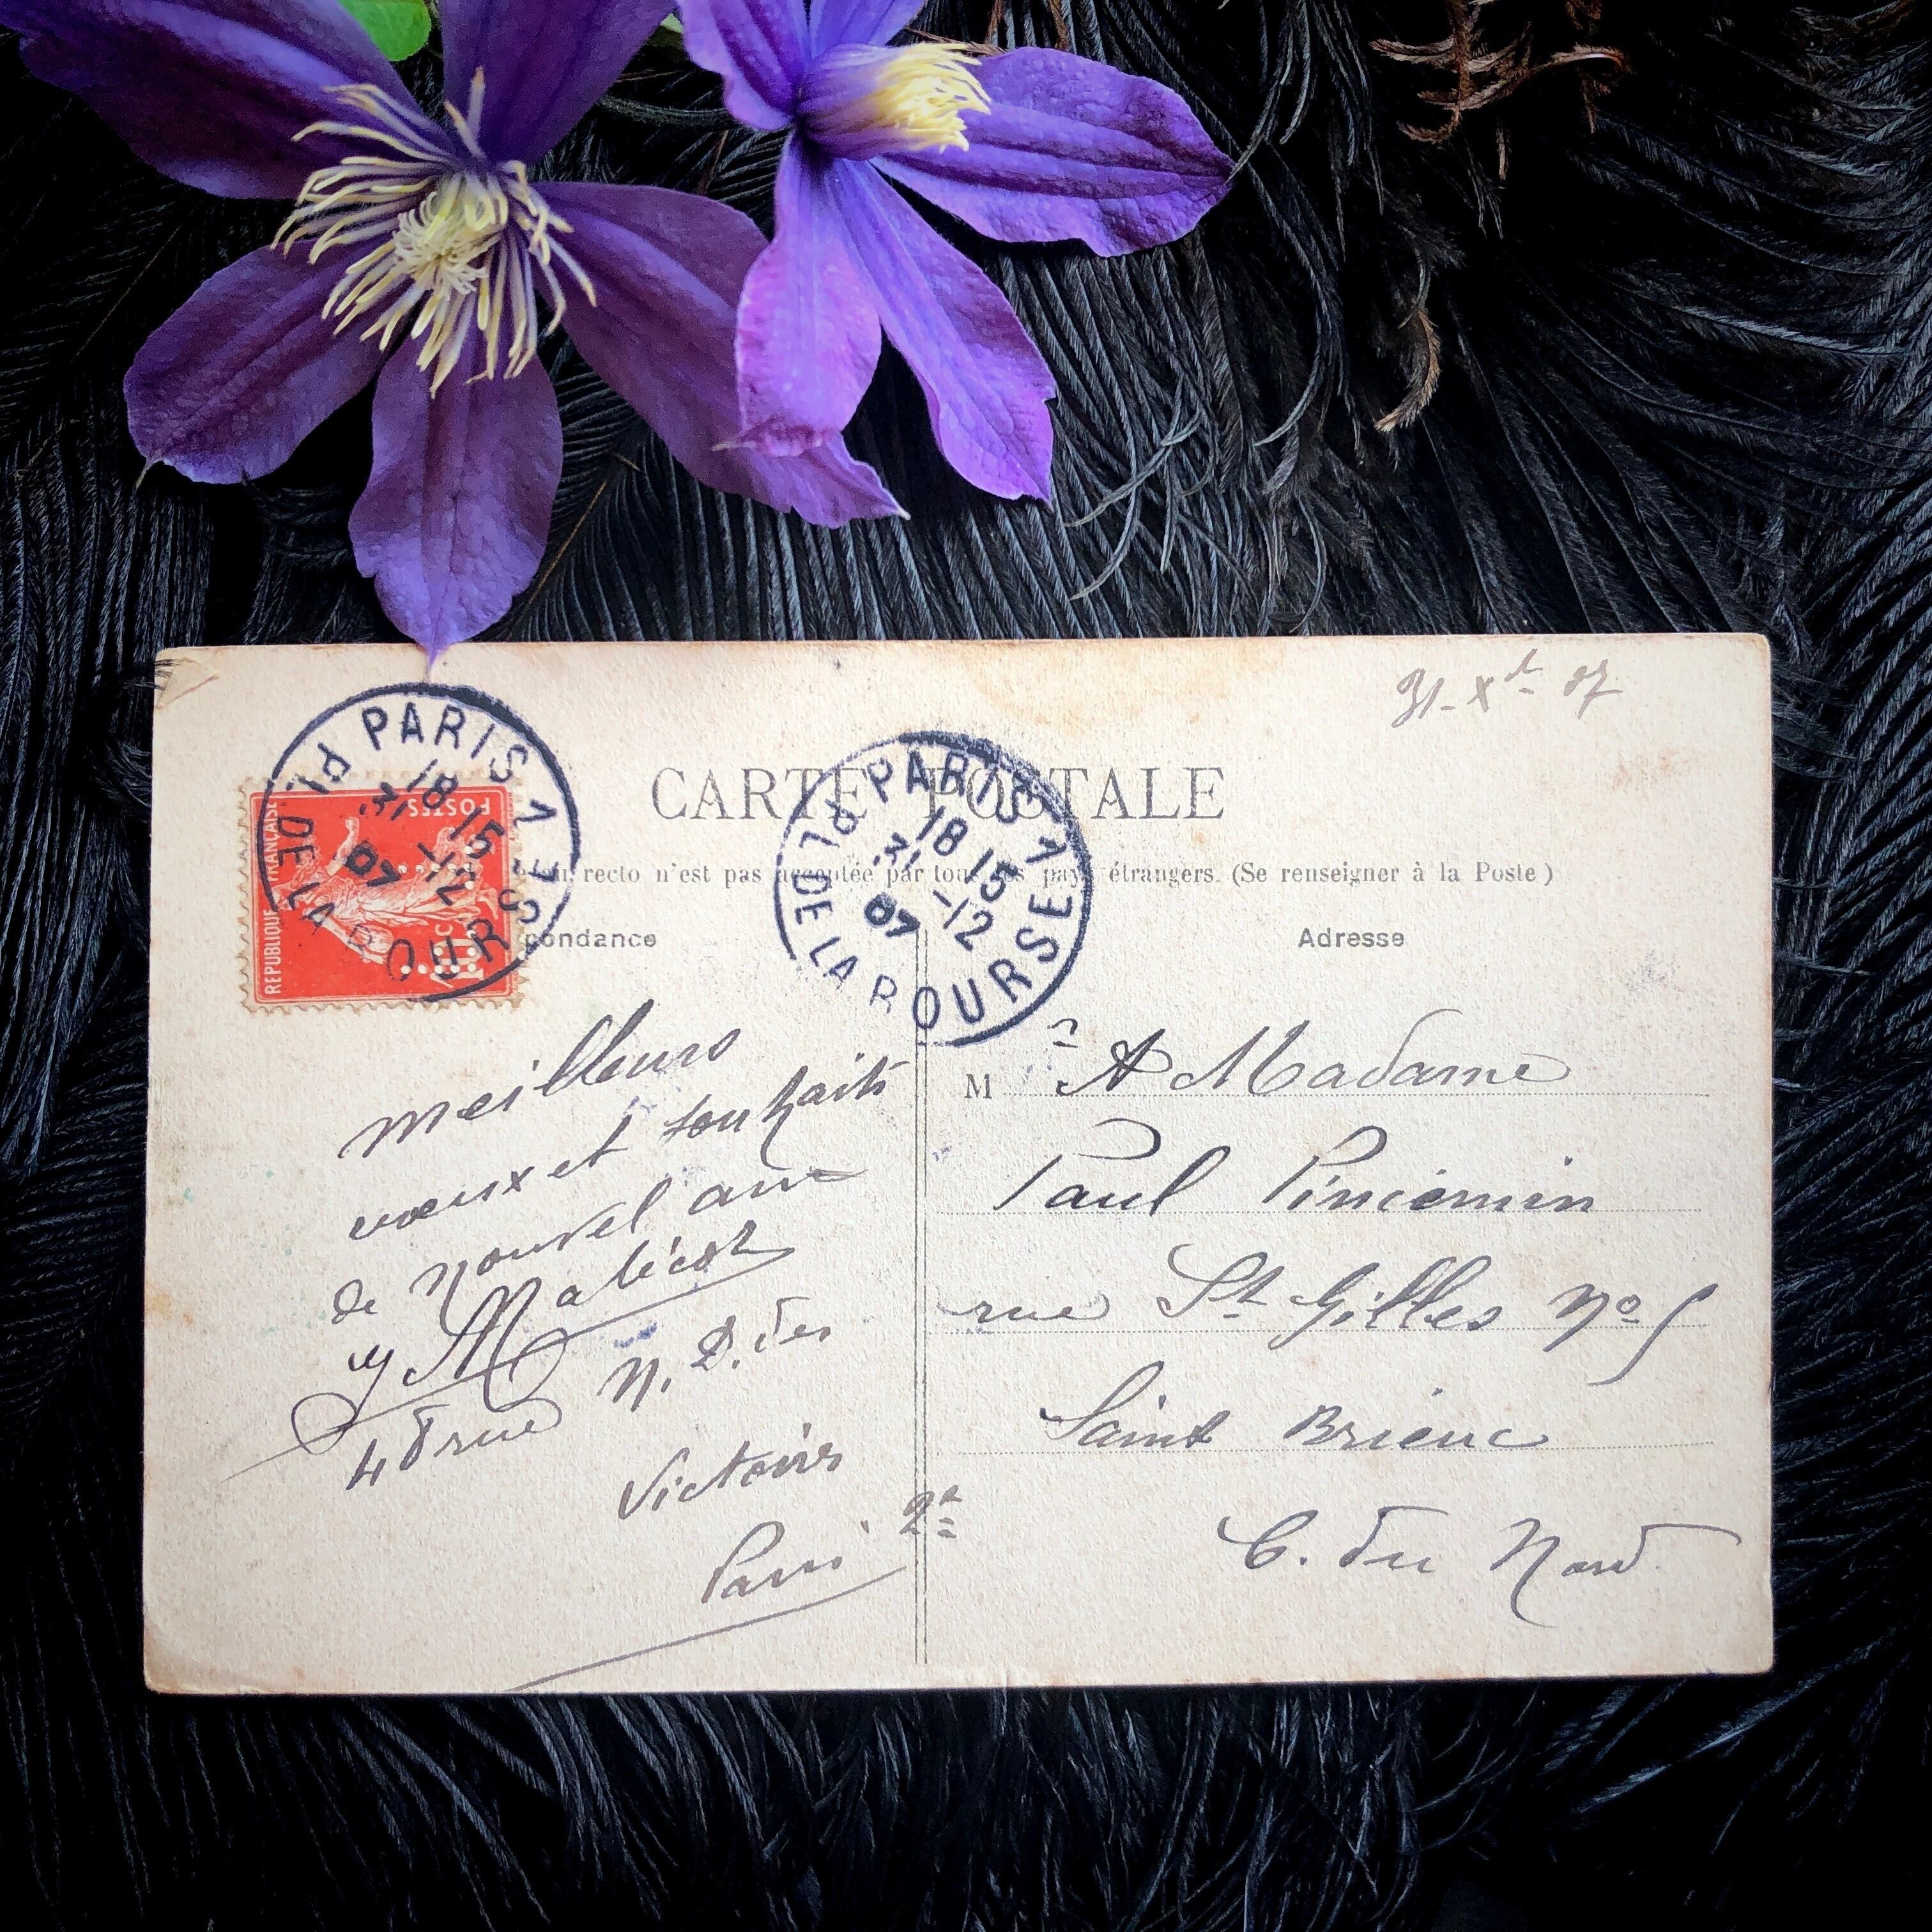 31 - Xbre 07
CARTE POSTALE
recto n'est pas acceptée par tous les pays étrangers. (Se renseigner à la Poste)
pondance
Adresse
REPUBLIQUE FRANÇAISE
POSTES
PARIS 1
PL. DE LA BOURSE
18 15
31 -12
07
PARIS 1
PL. DE LA BOURSE
18 15
31 -12
07
meilleurs
vœux et souhaits
de nouvel
48 rue N. D. des
Victoires
Paris 2e
M A Madame
Paul Pincemin
rue St Gilles No 5
Saint Brieuc
C. du Nord